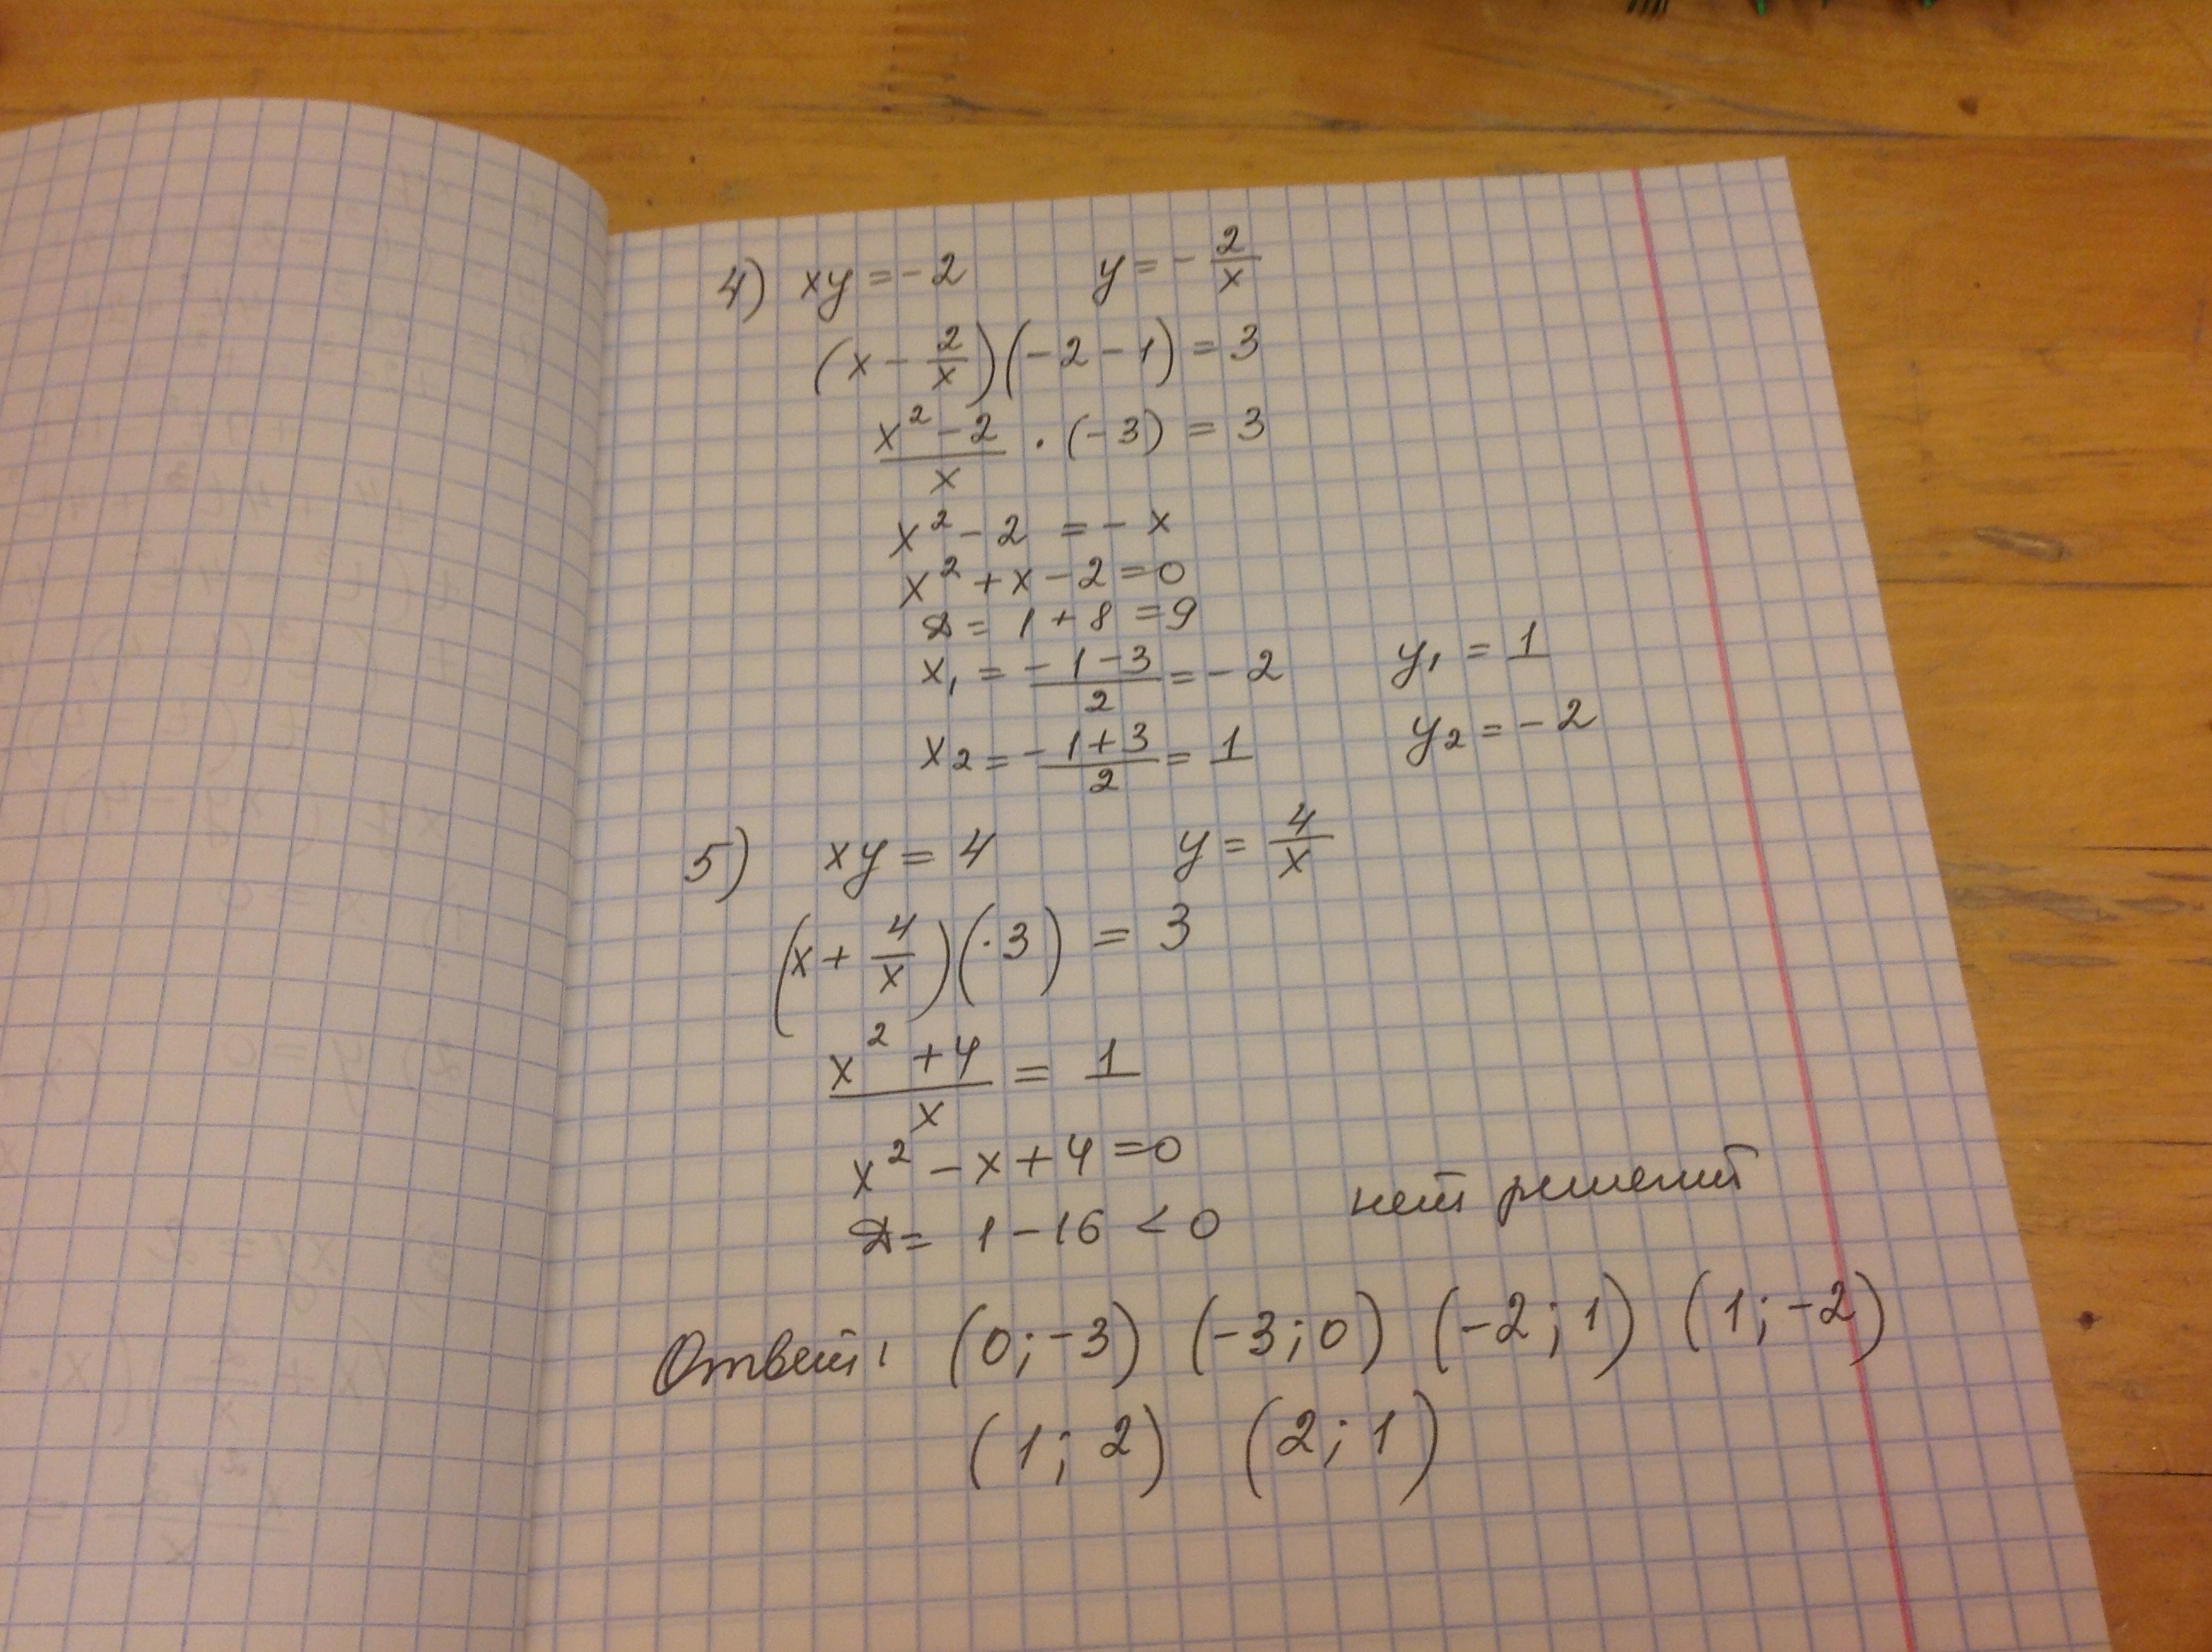 4) xy = -2 y = - 2/x
(x - 2/x)(-2 - 1) = 3
(x² - 2)/x · (-3) = 3
x² - 2 = - x
x² + x - 2 = 0
D = 1 + 8 = 9
x₁ = (-1 - 3)/2 = -2 y₁ = 1
x₂ = (-1 + 3)/2 = 1 y₂ = -2
5) xy = 4 y = 4/x
(x + 4/x)(·3) = 3
(x² + 4)/x = 1
x² - x + 4 = 0
D = 1 - 16 < 0 нет решений
Ответ: (0; -3) (-3; 0) (-2; 1) (1; -2)
(1; 2) (2; 1)